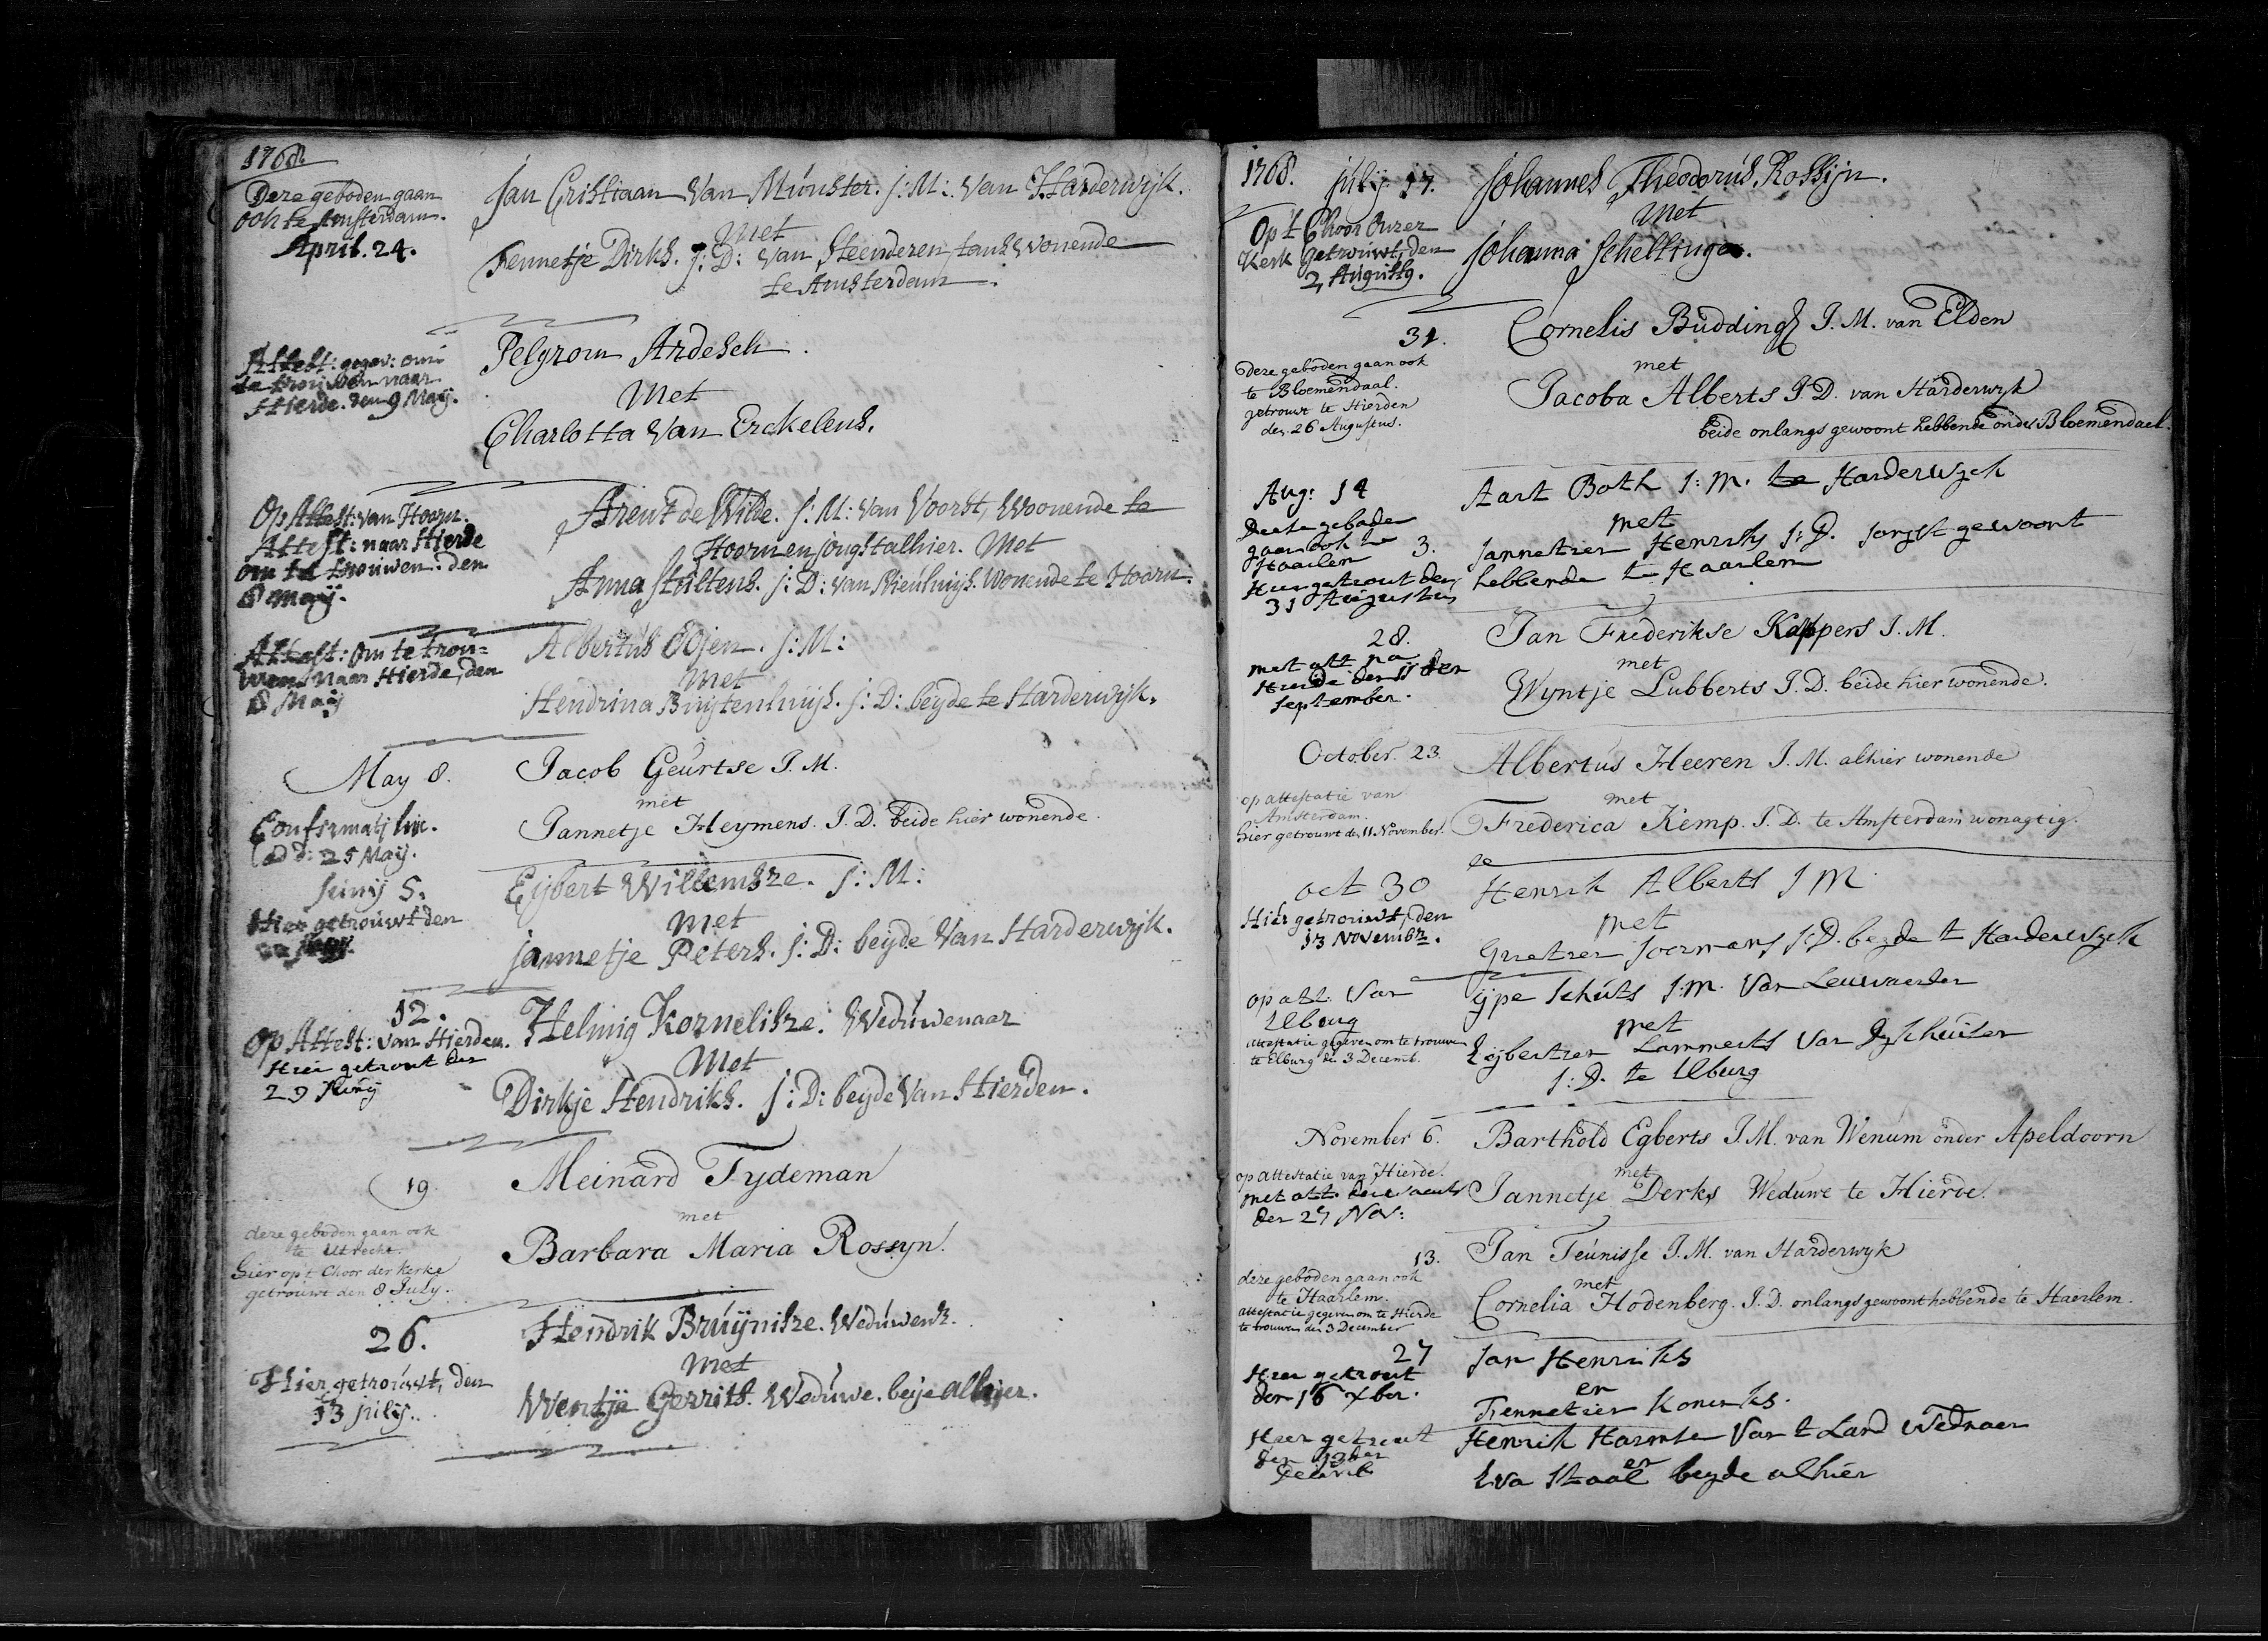 1768.
Deze geboden gaan
ook te Amsterdam.
April. 24.
Jan Cristiaan Van Múnster. j: M: Van Harderwijk.
Met
Fennetje Dirks. J: D: Van Steenderen, tans wonende
te Amsterdam.
Attest: gegev: om
te trouwen naar
Hierde. den 9 Maij.
Pelgrom Ardesch.
Met
Charlotta Van Erckelens.
Op Attest: van Hoorn.
Attest: naar Hierde
om te trouwen: den
8 Maij.
Arent de Wilde. j: M: van Voorst, Woonende te
Hoorn en jongst alhier. Met
Anna Stultens. j: D: van Nieuhuijs. Wonende te Hoorn.
Attest: om te trou=
wen naar Hierde, den
8 Maij
Albertús Oojen. j: M:
Met
Hendrina Buytenhuijs. j: D: beyde te Harderwijk.
May 8.
Jacob Geúrtse J. M.
met
Jannetje Heymens. J. D. beide hier wonende.
Confirmatj hic.
d: 25 Maij.
Junij 5.
Hier getrouwt den
Eijbert Willemsze. j: M:
Met
Jannetje Peters. j: D: beijde Van Harderwijk.
12.
Op Attest: van Hierden.
Hier getrout den
29 Junij
Helmig Kornelisze. Wedúwenaar
Met
Dirkje Hendriks. j: D: beyde Van Hierden.
19.
deze geboden gaan ook
te Utrecht.
hier op t Choor der kerke
getrouwt den 8 July.
Meinard Tydeman
met
Barbara Maria Rossyn.
26.
Hier getroúwt, den
13 júlij.
Hendrik Brúijnisze. Wedúwenr.
Met
Wentje Gerrits. Wedúwe. beije alhier.
1768. júlij 17.
Op 't Choor onzer
Kerk getroúwt, den
2, Augusts.
Johannes Theodorús Rossijn.
Met
Johanna Scheltinga.
31.
Deze geboden gaan ook
te Bloemendaal.
getrouwt te Hierden
den 26 Augustus.
Cornelis Budding J. M. van Elden
met
Jacoba Alberts J. D. van Harderwyk
beide onlangs gewoont hebbende onder Bloemendael.
Aug: 14
Deese geboden
gaan ook te 3.
Haarlem
Hier getrout den
31 Augustus
Aart Both J: M. te Harderwyck
met
Jannetien Henriks J: D. jongst gewoont
hebbende te Haarlem
28.
met att na
Hierde den 11 den
September.
Jan Frederikse Kappers J. M.
met
Wyntje Lubberts J. D. beide hier wonende.
October 23.
op attestatie van
Amsterdam.
hier getrouwt den 11 November.
Albertús Heeren J. M. alhier wonende
met
Frederica Kemp. J. D. te Amsterdam wonagtig.
oct 30
Hier getrouwt, den
13 Novembr.
Henrik Alberts J M
met
Grietien J: D. beyde te Harderwyck
op att. van
Elburg
attestatie gegeven om te trouwen
te Elburg den 3 Decemb.
Ype Schúts J: M. van Leuwaerden
met
Eijbertien Lammerts van
J: D. te Elburg
November 6.
op attestatie van Hierde.
met att. derwaerts
den 27 Nov:
Barthold Egberts J. M. van Wenúm onder Apeldoorn
met
Jannetje Derks Weduwe te Hierde.
13.
deze geboden gaan ook
te Haarlem.
attestatie gegeven om te Hierde
te trouwen den 3 December
Jan Teúnisse J. M. van Harderwyk
met
Cornelia Hodenberg. J. D. onlangs gewoont hebbende te Haerlem.
27
Hier getrout
den 16 xber.
Jan Henriks
en
Fennetien
Hier getrout
den
Henrik Harmse Van t Land Wednaer
en
Eva Staal beyde alhier